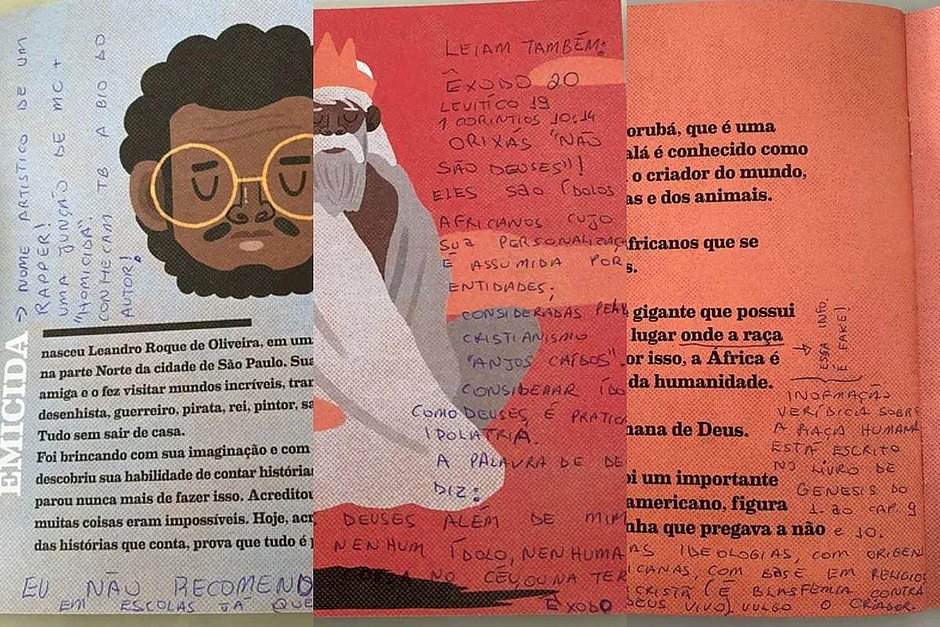 > NOME ARTISTICO DE UM
RAPPER!
UMA JUNÇÃO DE MC +
"HOMICIDA".
CONHEÇAM TB A BIO DO
AUTOR!
EMICIDA
nasceu Leandro Roque de Oliveira, em um
na parte Norte da cidade de São Paulo. Sua
amiga e o fez visitar mundos incríveis, tran
desenhista, guerreiro, pirata, rei, pintor, sa
Tudo sem sair de casa.
Foi brincando com sua imaginação e com
descobriu sua habilidade de contar história
parou nunca mais de fazer isso. Acreditou
muitas coisas eram impossíveis. Hoje, acr
das histórias que conta, prova que tudo é p
EU NÃO RECOMEND
EM ESCOLAS JÁ QUE
LEIAM TAMBÉM:
ÊXODO 20
LEVITÍCO 19
1 CORINTIOS 10:14
ORIXÁS "NÃO
SÃO DEUSES"!
ELES SÃO ÍDOLOS
AFRICANOS CUJO
SUA PERSONALIZAÇ
É ASSUMIDA POR
ENTIDADES,
CONSIDERADAS PEL
CRISTIANISMO
"ANJOS CAÍDOS".
CONSIDERAR ÍDO
COMO DEUSES É PRATICA
IDOLATRIA.
A PALAVRA DE DE
DIZ:
DEUSES ALÉM DE MIM
NENHUM ÍDOLO, NENHUMA
NO CÉU OU NA TER
ÊXODO
orubá, que é uma
alá é conhecido como
o criador do mundo,
as e dos animais.
fricanos que se
s.
gigante que possui
lugar onde a raça
or isso, a África é
da humanidade.
ESSA INFO.
É FAKE!
INOFMAÇÃO
VERÍDICA SOBRE
A RAÇA HUMANA
ESTÁ ESCRITO
NO LIVRO DE
GENESIS DO
1 AO CAP. 9
E 10.
mana de Deus.
oi um importante
americano, figura
nha que pregava a não
AS IDEOLOGIAS, COM ORIGEN
ICANAS, COM BASE EM RELIGIO
CRISTÃ (É BLASFÊMIA CONTRA
DEUS VIVO) VULGO O CRIADOR.